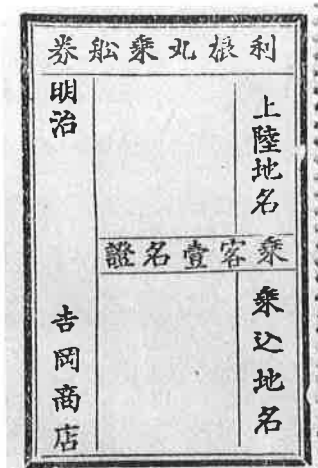 利根丸乗舩券
上陸地名
乗客壹名證
乗込地名
明治
吉岡商店